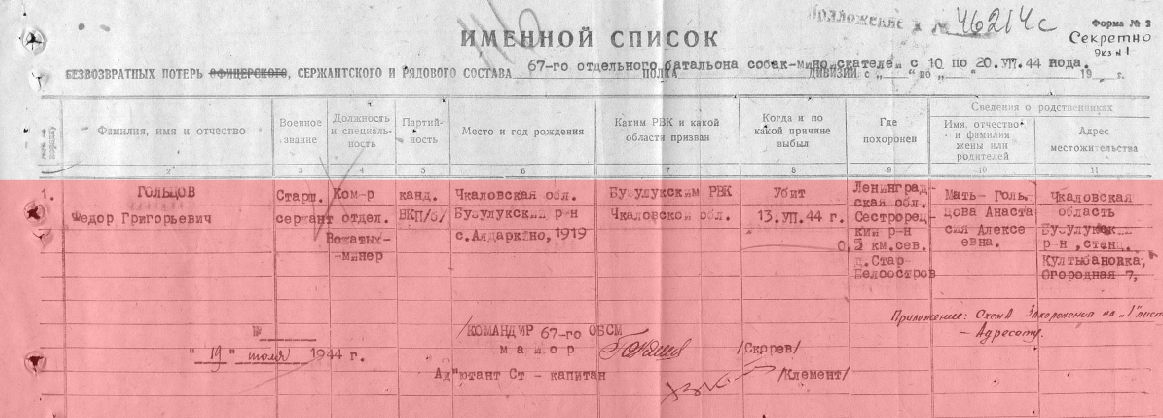 Приложение к № 46214с
Форма № 2
Секретно
Экз № 1
ИМЕННОЙ СПИСОК
БЕЗВОЗВРАТНЫХ ПОТЕРЬ ОФИЦЕРСКОГО, СЕРЖАНТСКОГО И РЯДОВОГО СОСТАВА 67-го отдельного батальона собак-миноискателей с 10 по 20.УП.44 года.
ПОЛКА ДИВИЗИИ с „ “ по „ “ 19 г.
Фамилия, имя и отчество
Военное звание
Должность и специальность
Партийность
Место и год рождения
Каким РВК и какой области призван
Когда и по какой причине выбыл
Где похоронен
Сведения о родственниках
Имя, отчество и фамилия жены или родителей
Адрес местожительства
2 3 4 5 6 7 8 9 10 11
1. ГОЛЬЦОВ Старш. Ком-р канд. Чкаловская обл. Бузулукским РВК Убит Ленинград- Мать- Голь Чкаловская
Федор Григорьевич сержант отдел. ВКП/б/ Бузулукский р-н Чкаловской обл. 13.УП.44 г. ская обл. цова Анаста область
Вожатых- с.Аядаркино, 1919 Сестрорец- сия Алексе Бузулукский
-минер кий р-н евна. р-н, станц.
0,5 км.сев. Култыбановка,
д.Стар- Огородная 7,
Белоостров
Приложение: Схема Захоронения на „1“ лист
- Адресату.
№
/КОМАНДИР 67-го ОБСМ
"19" июля 1944 г. майор /Скорев/
Ад"ютант Ст - капитан /Клемент/